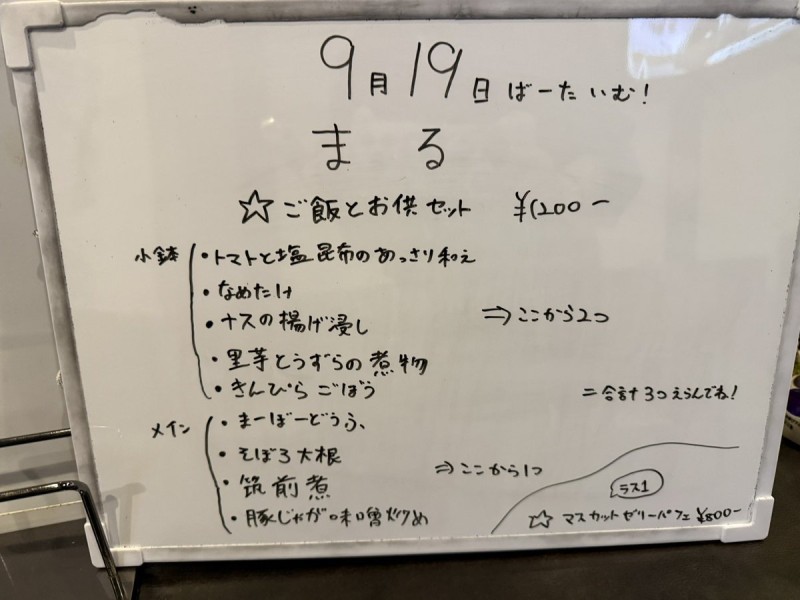 9月19日 ばーたいむ!
まる
☆ご飯とお供セット ¥1200-
小鉢
・トマトと塩昆布のあっさり和え
・なめたけ
・ナスの揚げ浸し
⇒ここから2つ
・里芋とうずらの煮物
・きんぴらごぼう
=合計3つえらんでね!
メイン
・まーぼーどうふ、
・そぼろ大根
⇒ここから1つ
・筑前煮
・豚じゃが味噌炒め
ラス1
☆マスカットゼリーパフェ ¥800-